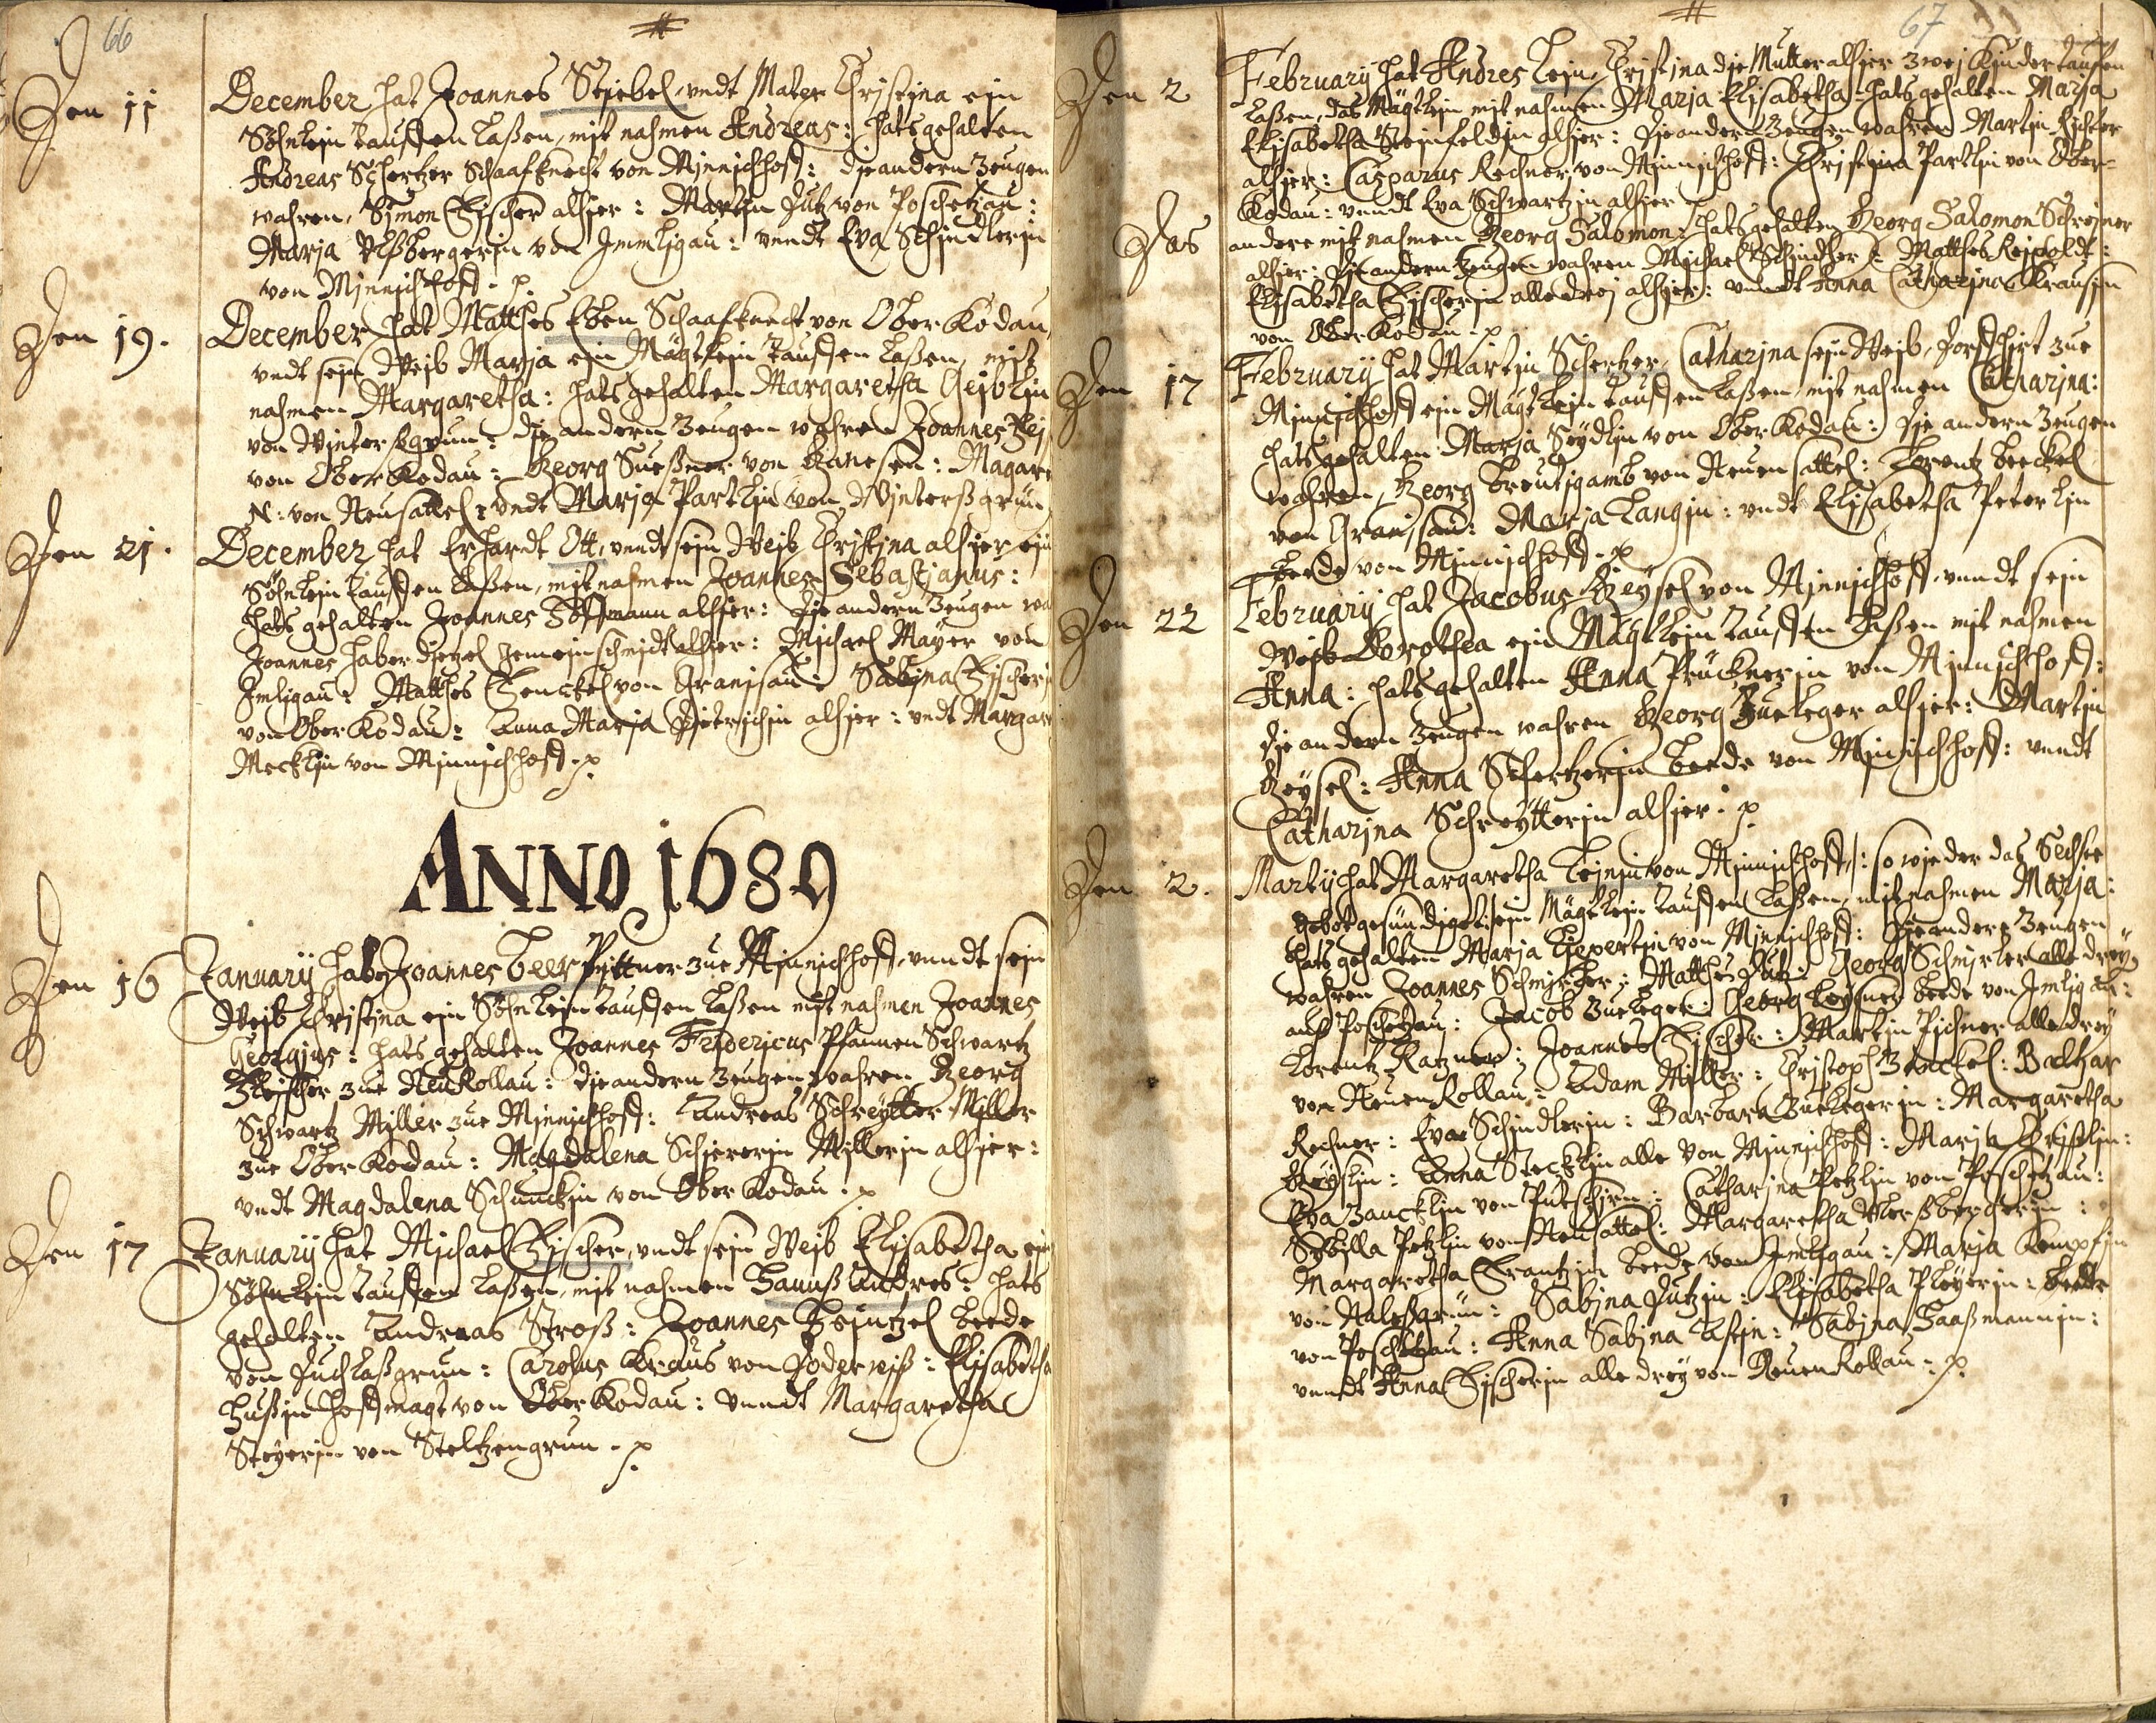 66
Den 11
December hat Joannes Stiebel, undt Mater Christina ein
Söhnlein tauffen laßen, mit nahmen Andreas: hats gehalten
Andreas Schertzer Schaafknecht von Minnichhoff: die andern Zeugen
wahren, Simon Fischer alhier: Martin Lutz von Poschetzau:
Maria Ulßbergerin von Immligau: undt Eva Schindlerin
von Minnichhoff. p.
Den 19.
December hat Matthes Eben Schaafknecht von Ober Kodau,
undt sein Weib Maria ein Mägtlein tauffen laßen, mit
nahmen Margaretha: hats gehalten Margaretha
von Winterßgrun: die andern Zeugen wahren Joannes
von Ober Kodau: Georg von : Magare
N: von Neusattel: undt Maria Partlin von Winterßgrün
Den 21.
December hat Erhardt Ott, undt sein Weib Christina alhier ein
Söhnlein tauffen laßen, mit nahmen Joannes Sebastianus:
hats gehalten Joannes Hoffmann alhier: die andern Zeugen wa
Joannes Haberdietzel gemeinschmidt alhier: Michael Mayer von
Imligau: Matthes von Granisau: Sabina Fischeri
von Ober Kodau: Anna Maria Dietrichin alhier: undt Margar
Mecklin von Minnichhoff. p.
ANNO 1689
Den 16
January hat Joannes Beer Pittner zue Minnichhoff, unndt sein
Weib Christina ein Söhnlein tauffen laßen mit nahmen Joannes
Georgius: hats gehalten Joannes Fridericus Pfannen Schwartz
Fleischer zue Neu Rollau: die andern Zeugen wahren Georg
Schwartz Miller zue Minnichhoff: Andreas Schreytter Miller
zue Ober Kodau: Magdalena Schiererin Millerin alhier:
undt Magdalena Schunckin von Ober Kodau. p.
Den 17
January hat Michael Fischer, undt sein Weib Elisabetha ein
Söhnlein tauffen laßen, mit nahmen Hannß Andres: hats
gehalten Andreas Stroß: Joannes Heintzel beede
von Puchlaßgrun: Carolus Kraus von Poderniß: Elisabetha
Hussin Hoffmagt von Ober Kodau: unndt Margaretha
Steyerin von Steltzengrun. p.
67
Den 2
February hat Andres Lein, Christina die Mutter alhier zwei Kinder tauffen
laßen, das Mägtlein mit nahmen Maria Elisabetha: hats gehalten Maria
Elisabetha Steinfeldin alhier: die andern Zeugen wahren Martin Richter
alhier: Casparus Rechner von Minnichhoff: Christina Partlin von Ober-
Kodau: unndt Eva Schwartzin alhier
Das
andere mit nahmen Georg Salomon: hats gehalten Georg Salomon Schreiner
alhier: die andern Zeugen wahren Michael Schindler: Matthes Leipoldt:
Elisabetha Fischerin alle drei alhier: unndt Anna Catharina Krausin
von Ober Kodau. p
Den 17
February hat Martin Schertzer, Catharina sein Weib, Dorffhirt zue
Minnichhoff ein Mägtlein tauffen laßen, mit nahmen Catharina:
hats gehalten Maria Seydlin von Ober Kodau: die andern Zeugen
wahren, Georg Breutigamb von Neuen sattel: Lorentz Beckel
von Granisau: Maria Langin: undt Elisabetha Peterlin
beede von Minnichhoff. p
Den 22
February hat Jacobus Geysel von Minnichhoff, unndt sein
Weib Dorothea ein Mägtlein tauffen laßen mit nahmen
Anna: hats gehalten Anna Pruknerin von Minnichhoff:
die andern Zeugen wahren Georg Zueleger alhier: Martin
Geysel: Anna Schertzerin beede von Minnichhoff: unndt
Catharina Schreytterin alhier. p.
Den 2.
Marty hat Margaretha Leinin von Minnichhoff: so wieder daz Sechste
gebot gesündiget: ein Mägtlein tauffen laßen, mit nahmen Maria:
hats gehalten Maria von Minnichhoff: die andere Zeugen
wahren Joannes Schmirler: Matthes Lutz: Georg Schmirler alle drey
auß Poschetzau: Jacob Zueleger: Georg beede von Imligau:
Lorentz Katzner: Joannes Fischer: Martin Pichner alle drey
von Neuen Rollau: Adam Miller: Christoph Zenckel: Balthar
Rechner: Eva Schindlerin: Barbara Zuelegerin: Margaretha
Geyslin: Anna Stecklin alle von Minnichhoff: Maria Christlin:
Eva Zancklin von Putschirn: Catharina Petzlin von Poschetzau:
Sybilla Petzlin von Neusattel: Margaretha Ulerßbergerin:
Margaretha Frantzin beede von Imligau: Maria Kempfin
von Aaleßgrün: Sabina Lutzin: Elisabetha Pleyerin: beede
von Poschetzau: Anna Sabina Tastin: Sabina Haaßmannin:
unndt Anna Fischerin alle drey von Neuen Rollau. p.